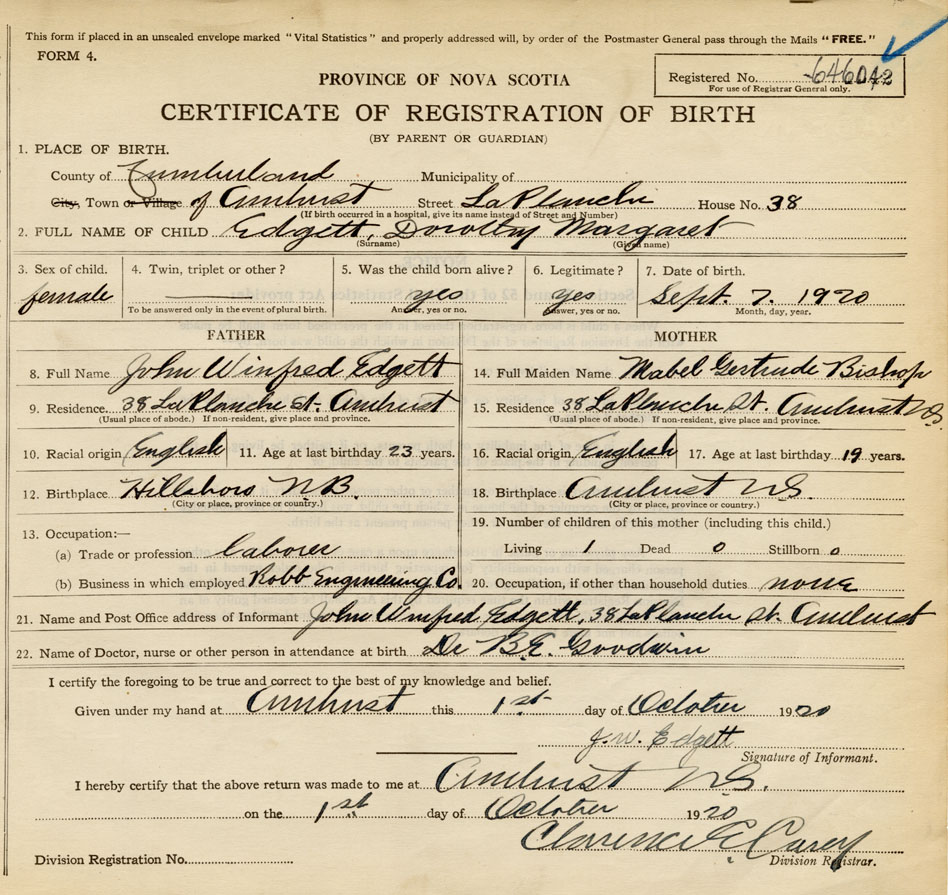 This form if placed in an unsealed envelope marked "Vital Statistics" and properly addressed will, by order of the Postmaster General pass through the Mails "FREE."
FORM 4.
PROVINCE OF NOVA SCOTIA
Registered No. 646042
For use of Registrar General only.
CERTIFICATE OF REGISTRATION OF BIRTH
(BY PARENT OR GUARDIAN)
1. PLACE OF BIRTH.
County of Cumberland Municipality of
City, Town or Village of Amherst Street LaPlanche House No. 38
(If birth occurred in a hospital, give its name instead of Street and Number)
2. FULL NAME OF CHILD Edgett, Dorothy Margaret
(Surname) (Given name)
3. Sex of child. 4. Twin, triplet or other? 5. Was the child born alive? 6. Legitimate? 7. Date of birth.
female yes yes Sept. 7. 1920
To be answered only in the event of plural birth. Answer, yes or no. Answer, yes or no. Month, day, year.
FATHER MOTHER
8. Full Name John Winfred Edgett 14. Full Maiden Name Mabel Gertrude Bishop
9. Residence. 38 LaPlanche St. Amherst 15. Residence 38 LaPlanche St. Amherst N.S.
(Usual place of abode.) If non-resident, give place and province. (Usual place of abode.) If non-resident, give place and province.
10. Racial origin English 11. Age at last birthday 23 years. 16. Racial origin English 17. Age at last birthday 19 years.
12. Birthplace Hillsboro N.B. 18. Birthplace Amherst N.S.
(City or place, province or country.) (City or place, province or country.)
13. Occupation:— 19. Number of children of this mother (including this child.)
(a) Trade or profession laborer Living 1 Dead 0 Stillborn 0
(b) Business in which employed Robb Engineering Co. 20. Occupation, if other than household duties none
21. Name and Post Office address of Informant John Winfred Edgett, 38 LaPlanche St. Amherst
22. Name of Doctor, nurse or other person in attendance at birth Dr B.E. Goodwin
I certify the foregoing to be true and correct to the best of my knowledge and belief.
Given under my hand at Amherst this 1st day of October 1920
J.W. Edgett
Signature of Informant.
I hereby certify that the above return was made to me at Amherst N.S.
on the 1st day of October 1920
Clarence E. Casey
Division Registration No. Division Registrar.